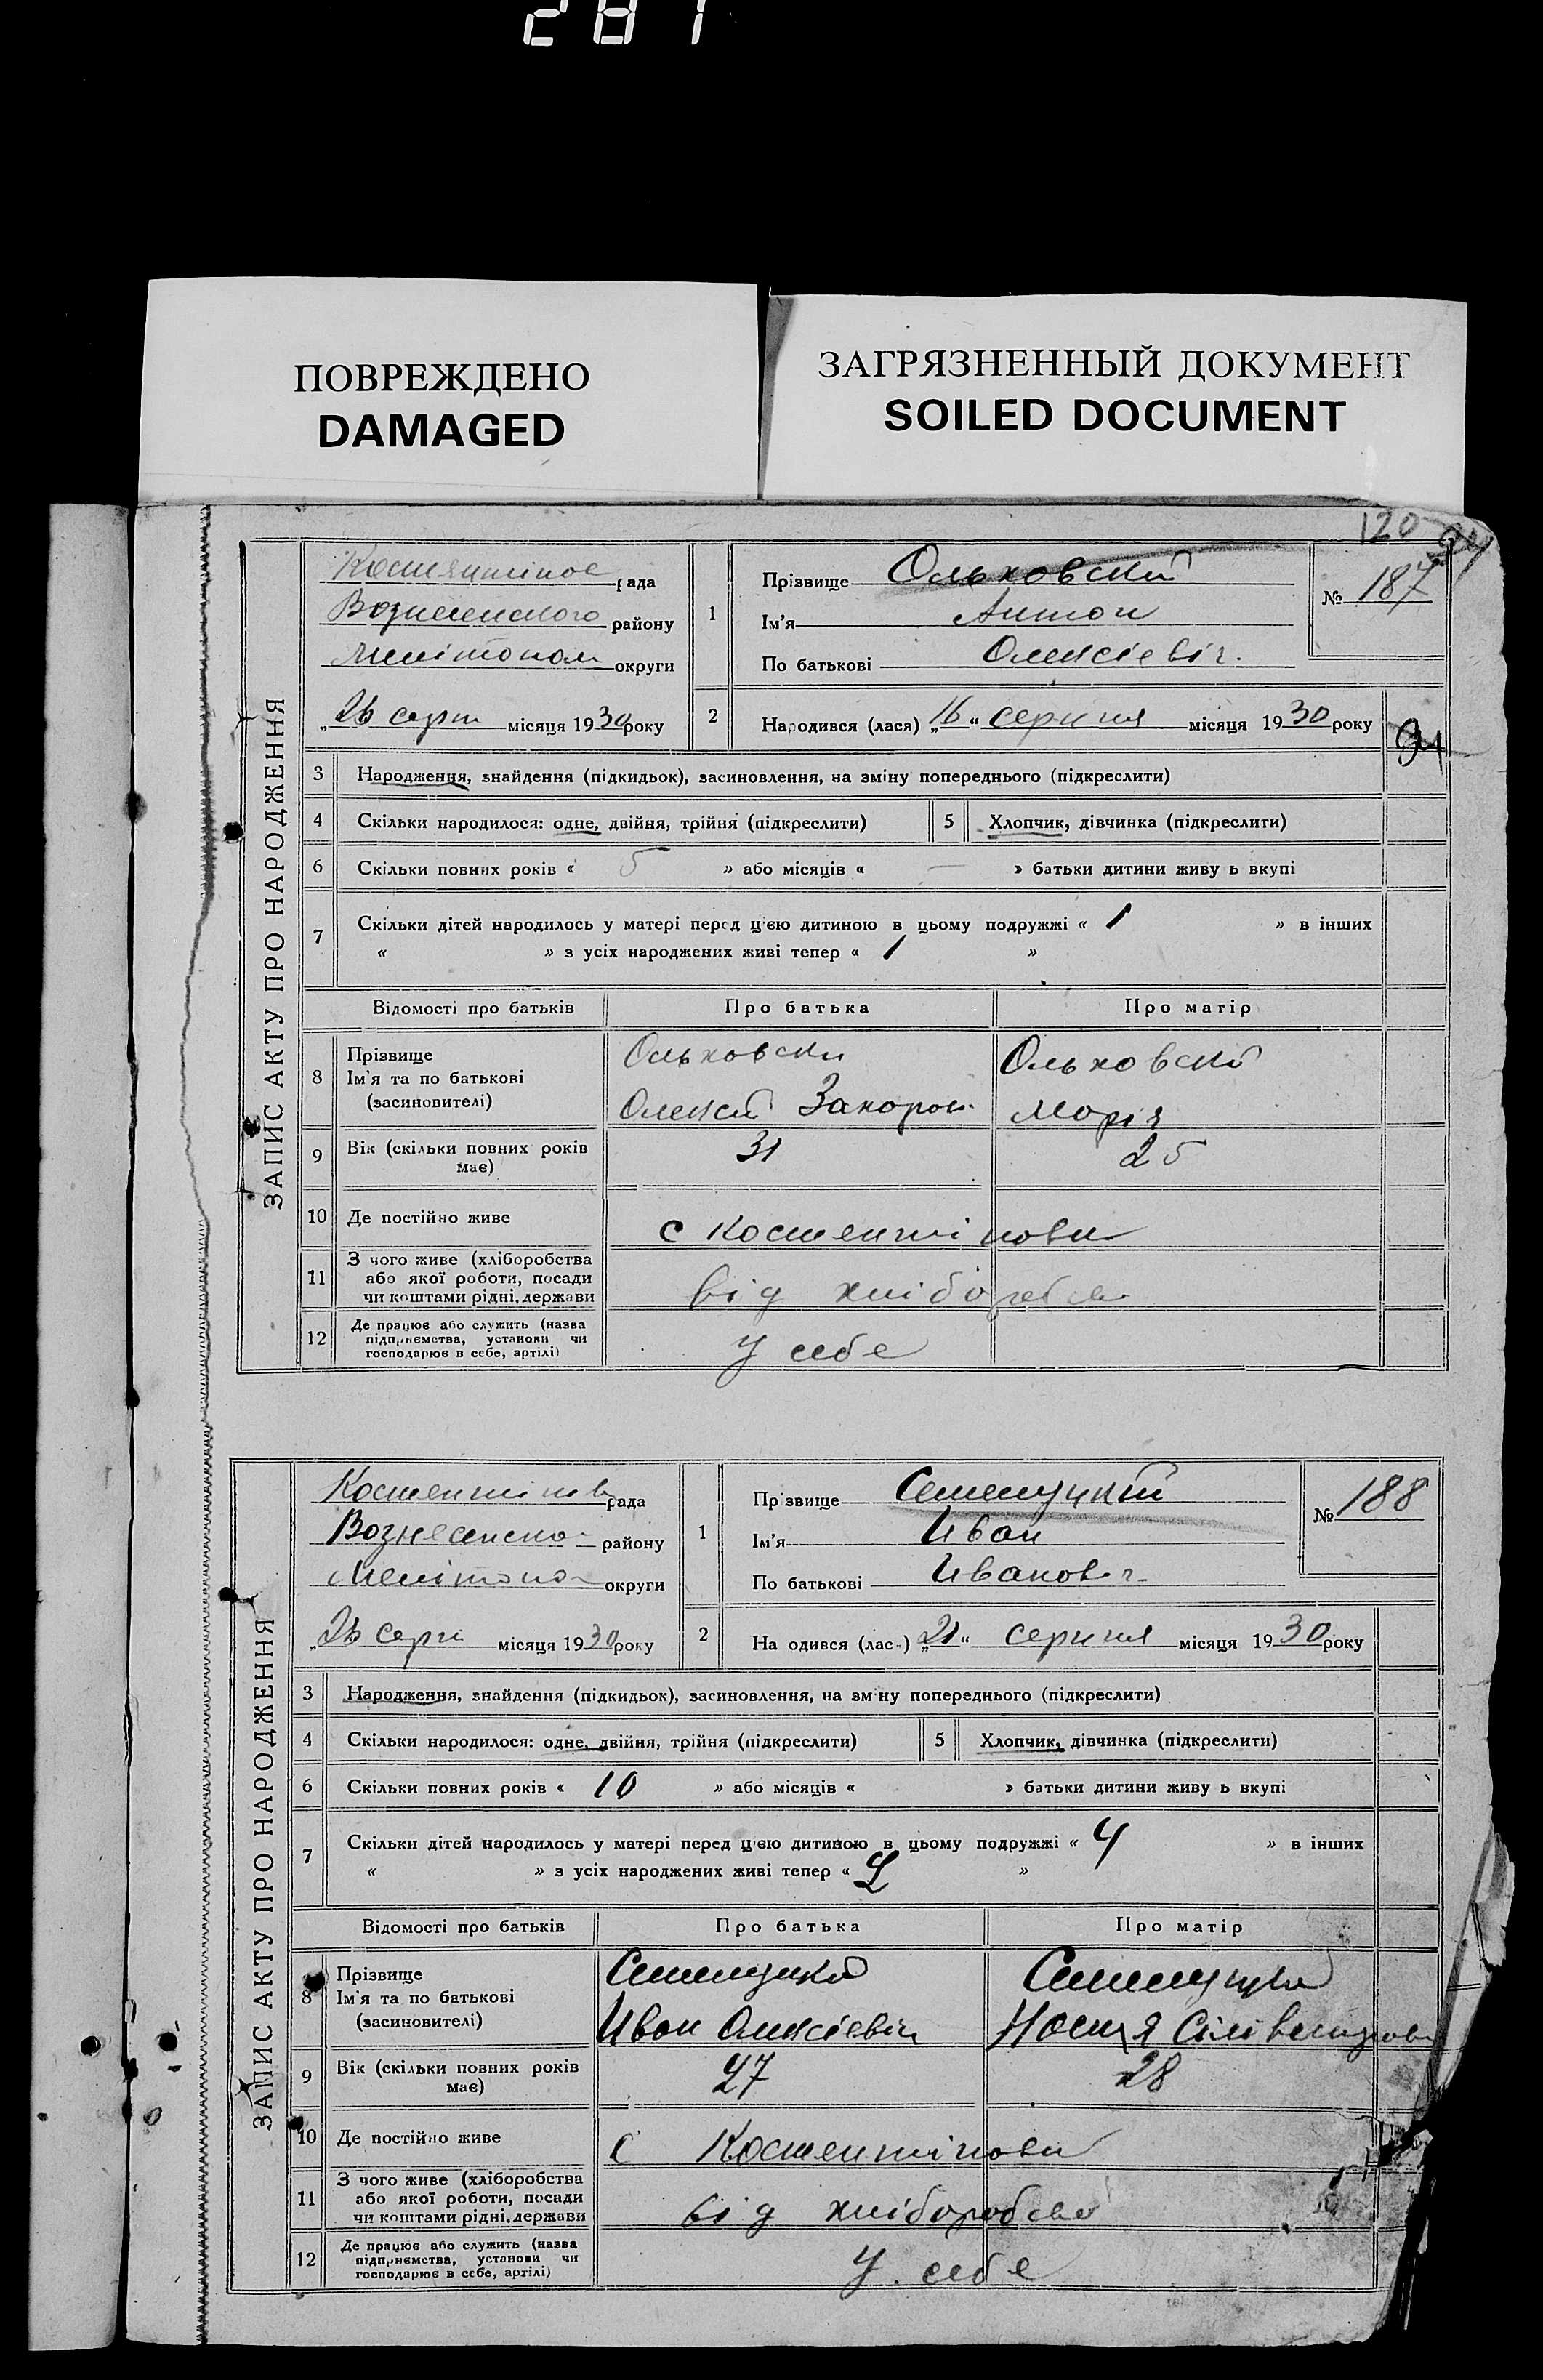 281
ПОВРЕЖДЕНО
DAMAGED
ЗАГРЯЗНЕННЫЙ ДОКУМЕНТ
SOILED DOCUMENT
120
94
ЗАПИС АКТУ ПРО НАРОДЖЕННЯ
рада
Вознесенского району
Мелітопол округи
26 серп місяця 1930 року
1
Прізвище Ольховский
Ім'я Антон
По батькові Олексієвіч.
№ 187
2
Народився (лася) „16“ серпня місяця 1930 року
3 Народження, знайдення (підкидьок), засиновлення, на зміну попереднього (підкреслити)
4 Скільки народилося: одне, двійня, трійня (підкреслити)
5 Хлопчик, дівчинка (підкреслити)
6 Скільки повних років « 5 » або місяців « — » батьки дитини живу ь вкупі
7 Скільки дітей народилось у матері перед цією дитиною в цьому подружжі « 1 » в інших
« » з усіх народжених живі тепер « 1 »
Відомості про батьків Про батька Про матір
8 Прізвище
Ім'я та по батькові
(засиновителі)
Ольховски
Олексій
Ольховскй
Марія
9 Вік (скільки повних років має)
31
25
10 Де постійно живе
с Костентінови
11 З чого живе (хліборобства
або якої роботи, посади
чи коштами рідні, держави
від хліборобсв
12 Де працює або служить (назва
підприємства, установи чи
господарює в себе, артілі)
У себе
ЗАПИС АКТУ ПРО НАРОДЖЕННЯ
Костентінів рада
Вознесенско району
Мелітопо округи
„26 серп місяця 1930 року
1
Пр звище
Ім'я Иван
По батькові Иванович
№ 188
2
На одився (лас ) „21“ серпня місяця 1930 року
3 Народження, знайдення (підкидьок), засиновлення, на зм ну попереднього (підкреслити)
4 Скільки народилося: одне, двійня, трійня (підкреслити)
5 Хлопчик, дівчинка (підкреслити)
6 Скільки повних років « 10 » або місяців « » батьки дитини живу ь вкупі
7 Скільки дітей народилось у матері перед цією дитиною в цьому подружжі « 4 » в інших
« » з усіх народжених живі тепер « 2 »
Відомості про батьків Про батька Про матір
8 Прізвище
Ім'я та по батькові
(засиновителі)
Иван Олексієвіч
9 Вік (скільки повних років має)
27
28
10 Де постійно живе
с Костентінови
11 З чого живе (хліборобства
або якої роботи, посади
чи коштами рідні, держави
від хліборобсва
12 Де працює або служить (назва
підприємства, установи чи
господарює в себе, артілі)
У себе